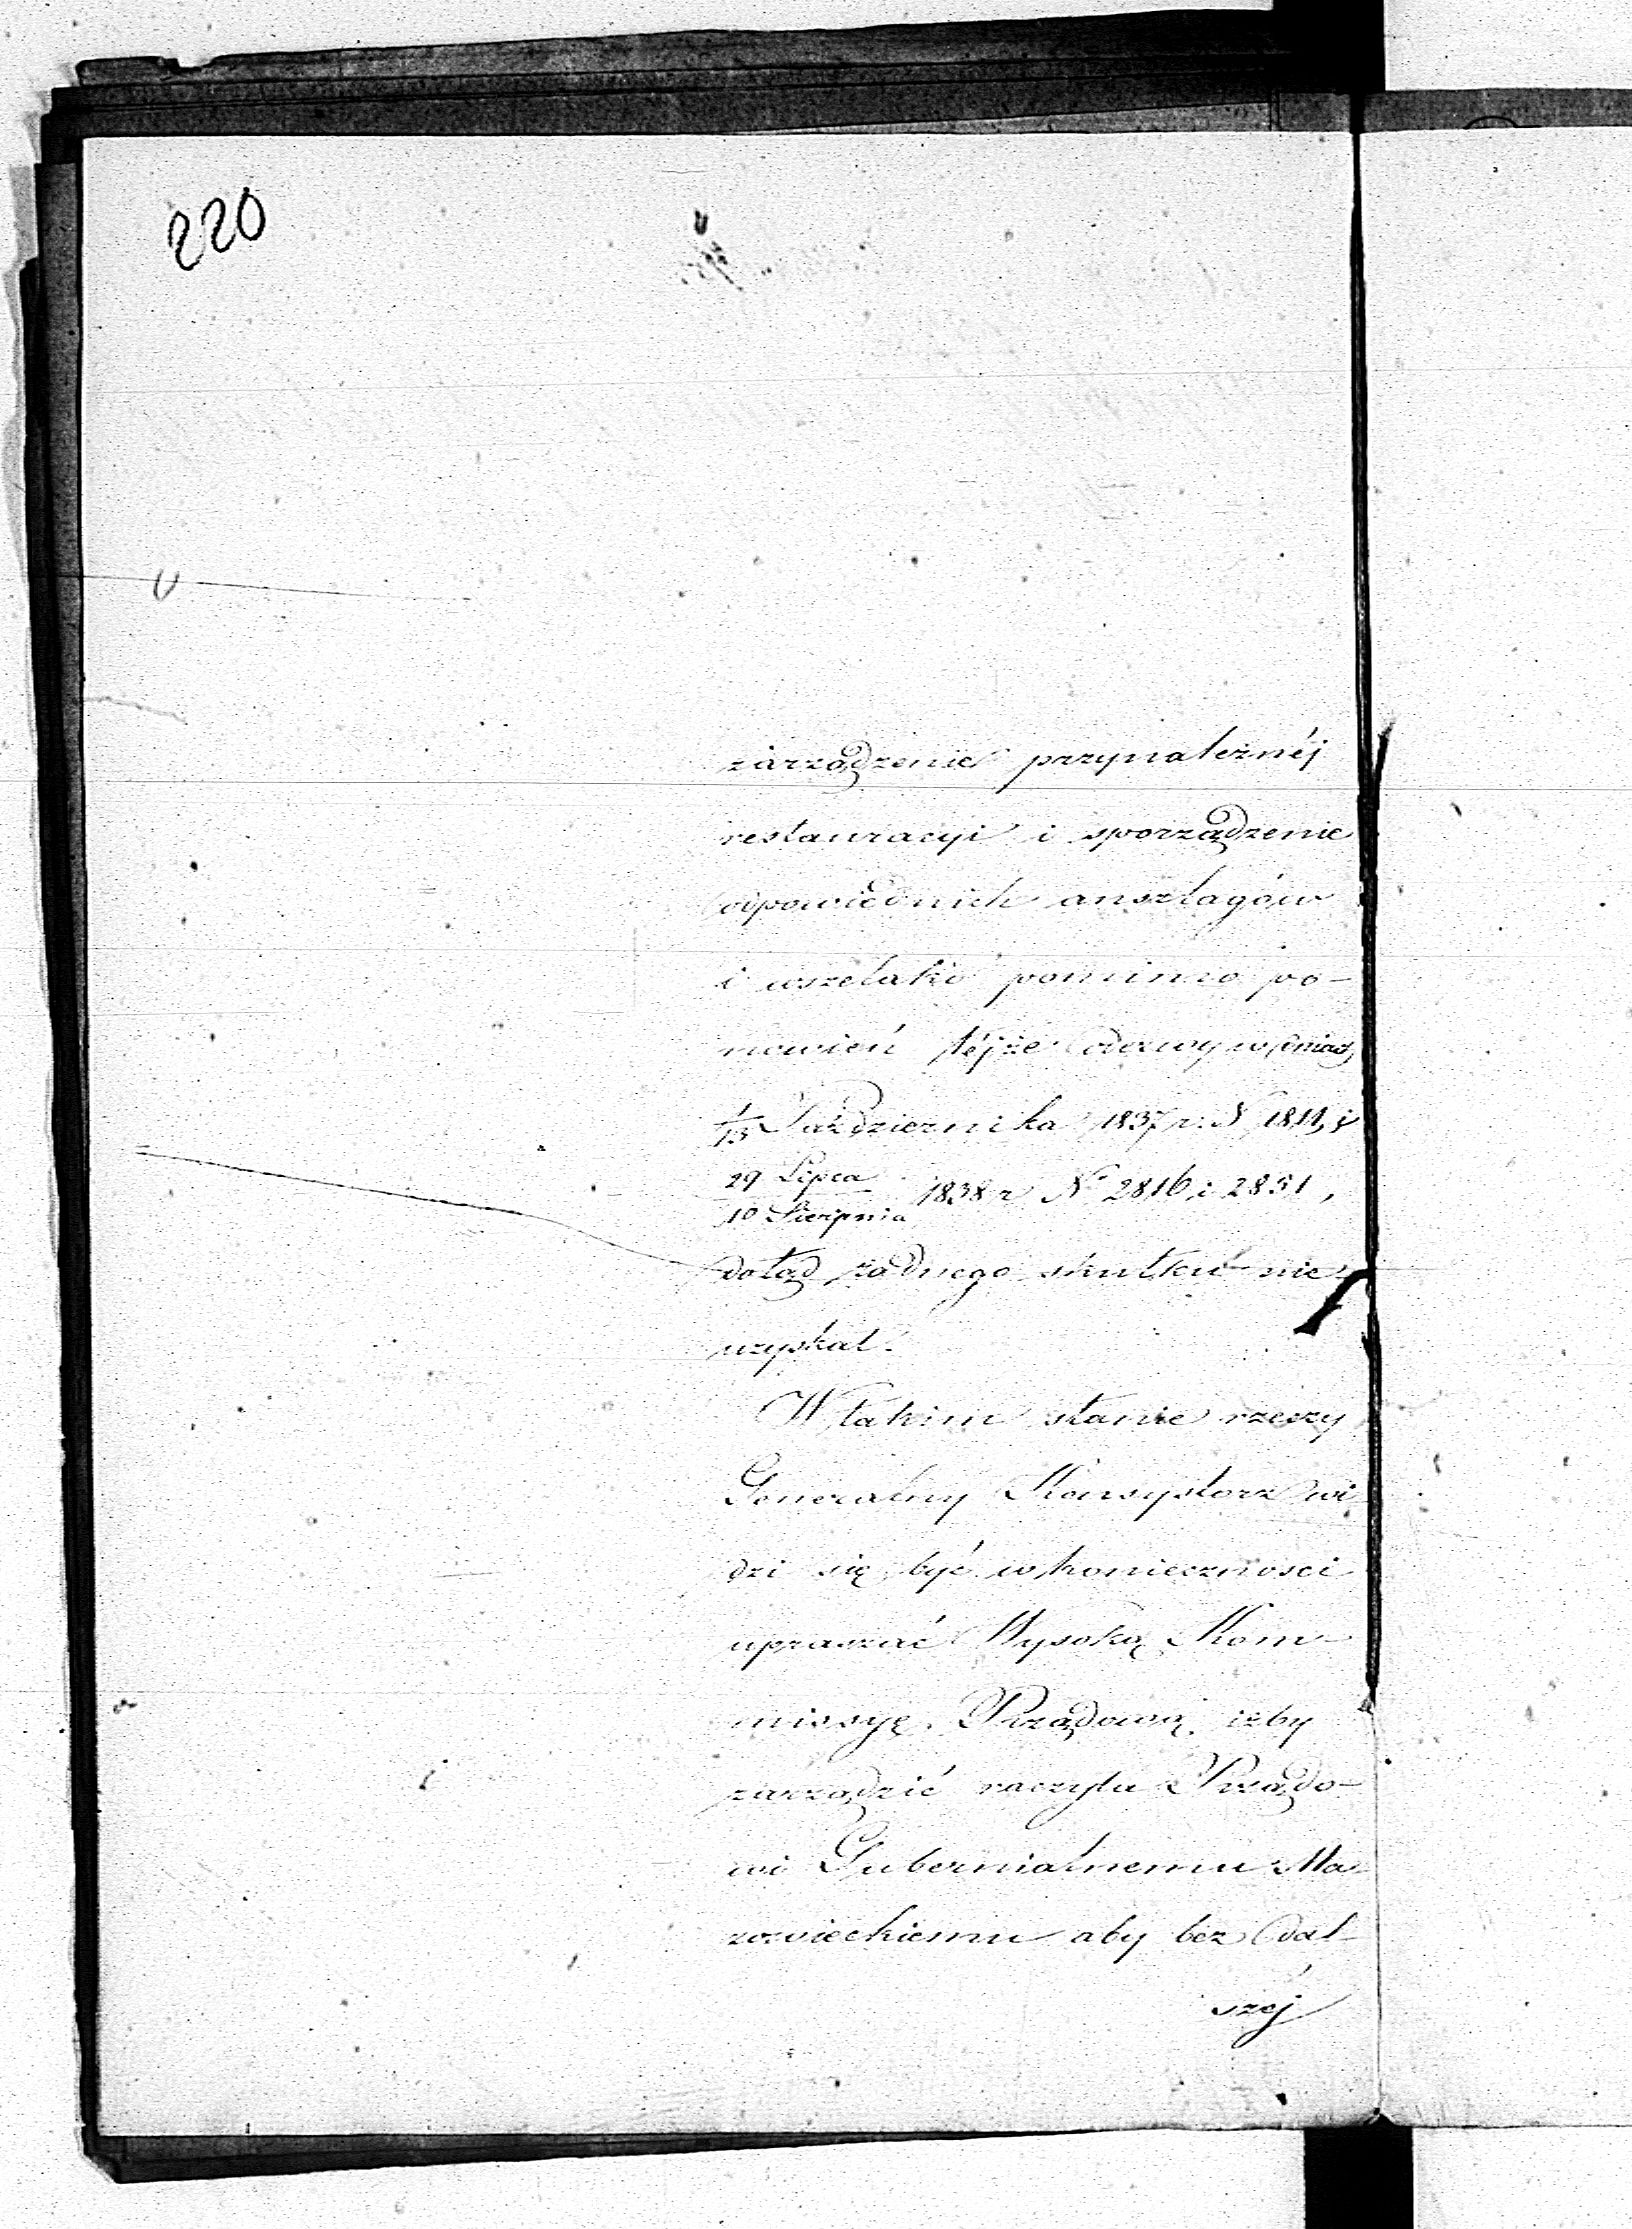 220
zarządzenie przynależnéj
restauracyi i sporządzenie
odpowiednich anszlagów
i wszelako pomimo po-
nowień téjże odezwy w dniach
1/13 Października 1837 r: N 1811, i
29 Lipca
10 Sierpnia 1838 r N 2816 i 2831,
dotąd żadnego skutku nie
uzyskał.
W takim stanie rzeczy
Generalny Konsystorz wi
dzi się być w konieczności
upraszać Wysoką Kom-
missyę Rządową, iżby
zarządzić raczyła Rządo-
wi Gubernialnemu Ma
zowieckiemu aby bez dal-
széj